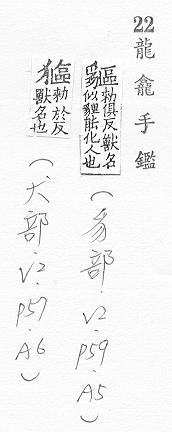 22龍龕手鑑
貙勑俱反獸名
似貍能化人也
(豸部.V2.P59.A5)
勑於反
獸名也
(犬部.V2.P57.A6)